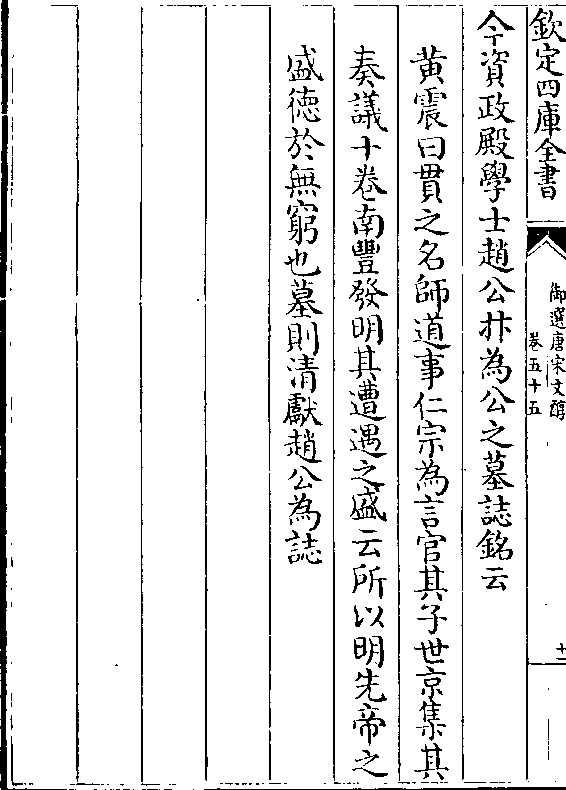 欽定四庫全書
御選唐宋文醇
卷五十五
十二
今資政殿學士趙公抃為公之墓誌銘云
黃震曰貫之名師道事仁宗為言官其子世京集其
奏議十卷南豐發明其遭遇之盛云所以明先帝之
盛德於無窮也墓則清獻趙公為誌